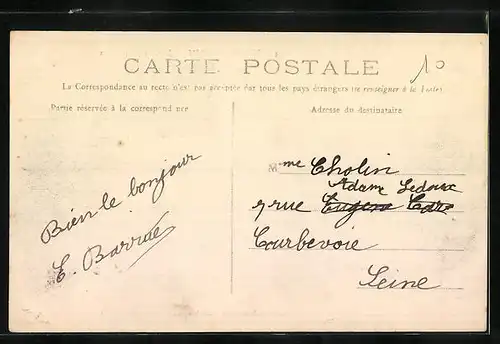 CARTE POSTALE
10
La Correspondance au recto n'est pas acceptée par tous les pays étrangers (se renseigner à la Poste)
Partie réservée à la correspondance
Adresse du destinataire
Bien le bonjour
E. Barrué
Mme Cholin
Adam Ledoux
9 rue Eugene Caro
Courbevoie
Seine